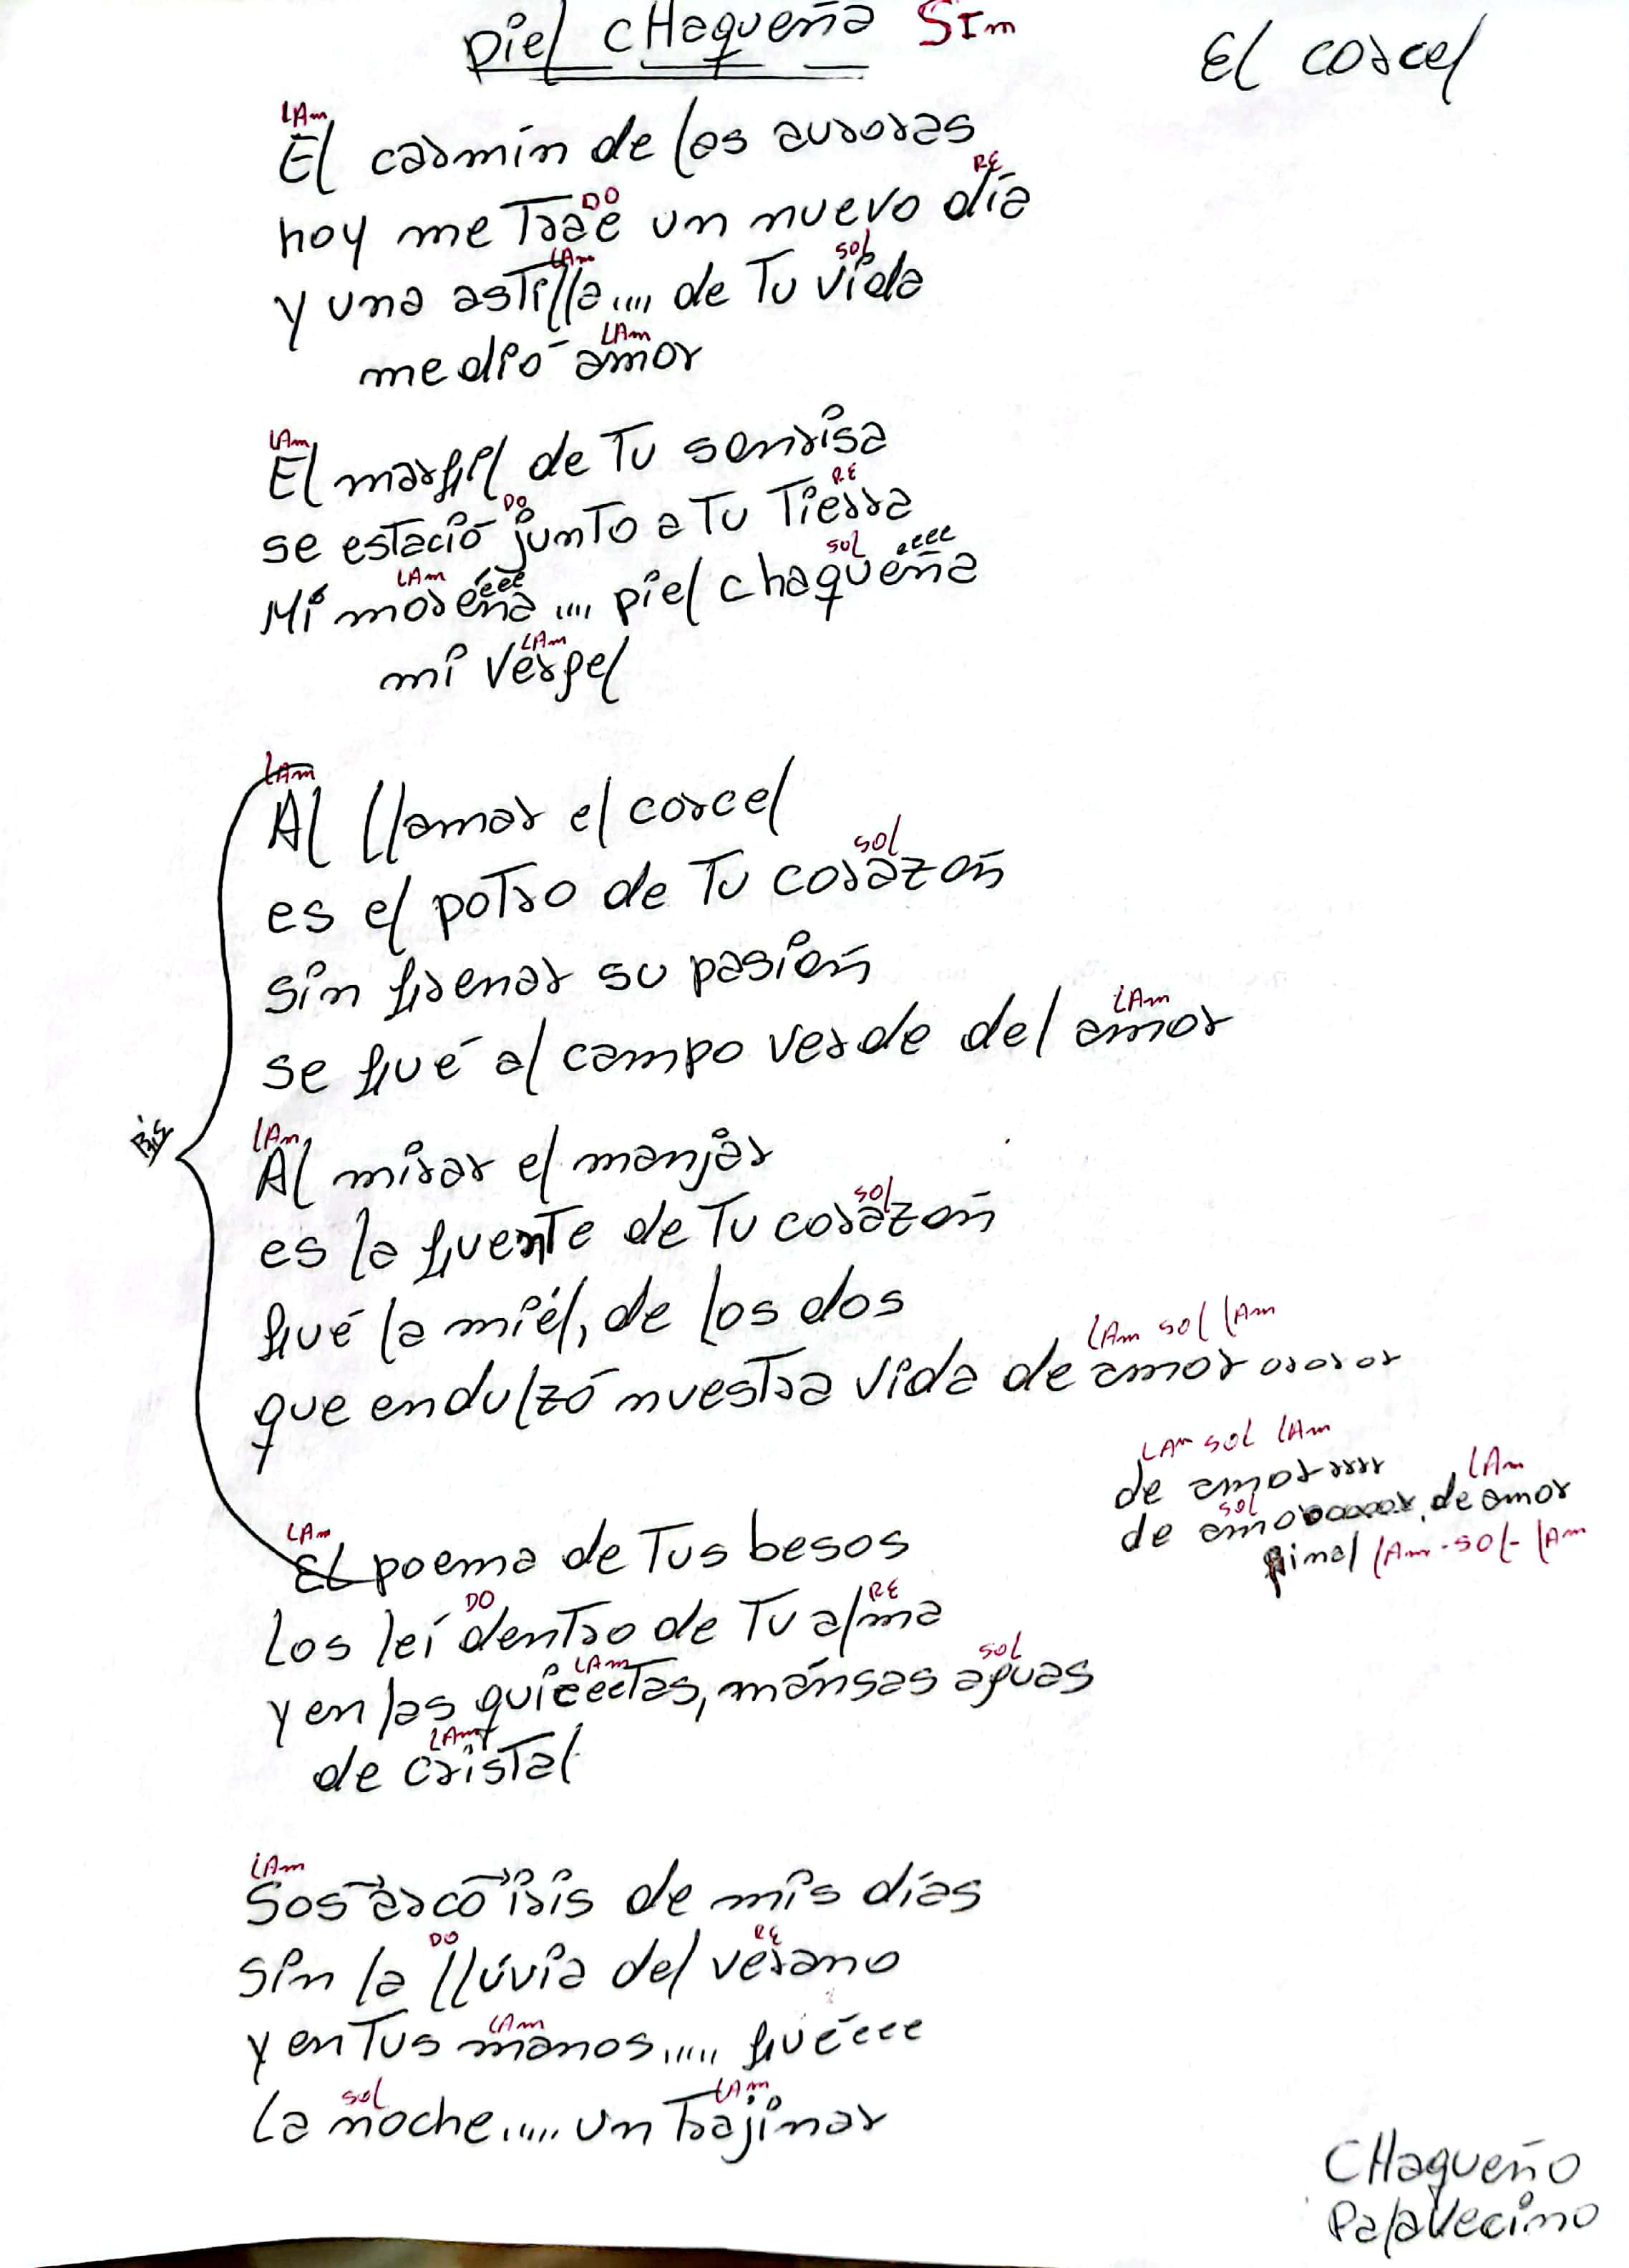 Piel CHaqueña SIm
El corcel
LAm
El carmín de las auroras
DO RE
hoy me Trae un nuevo día
LAm SOL
y una asTilla.... de Tu vida
LAm
me dió amor
LAm
El marfil de Tu sonrisa
DO RE
se estació junTo a Tu Tierra
LAm eee SOL eeee
Mi morena .... piel chaqueña
LAm
mi vergel
LAm
Al llamar el corcel
SOL
es el poTro de Tu corazón
sin frenar su pasión
LAm
se fué al campo verde del amor
Bis
LAm
Al mirar el manjar
SOL
es la fuenTe de Tu corazón
fué la miél, de los dos
LAm SOL LAm
que endulzó nuesTra vida de amor or or or
LAm SOL LAm
de amorrrrr
SOL LAm
de amor, de amor
final LAm - SOL - LAm
LAm
El poema de Tus besos
DO RE
Los leí denTro de Tu alma
LAm SOL
y en las quieeeTas, mánsas aguas
LAm
de crisTal
LAm
Sos arco iris de mis días
DO RE
sin la llúvia del verano
LAm
y en Tus manos..... fuéeee
SOL LAm
La noche..... un Trajinar
CHaqueño
Palavecino